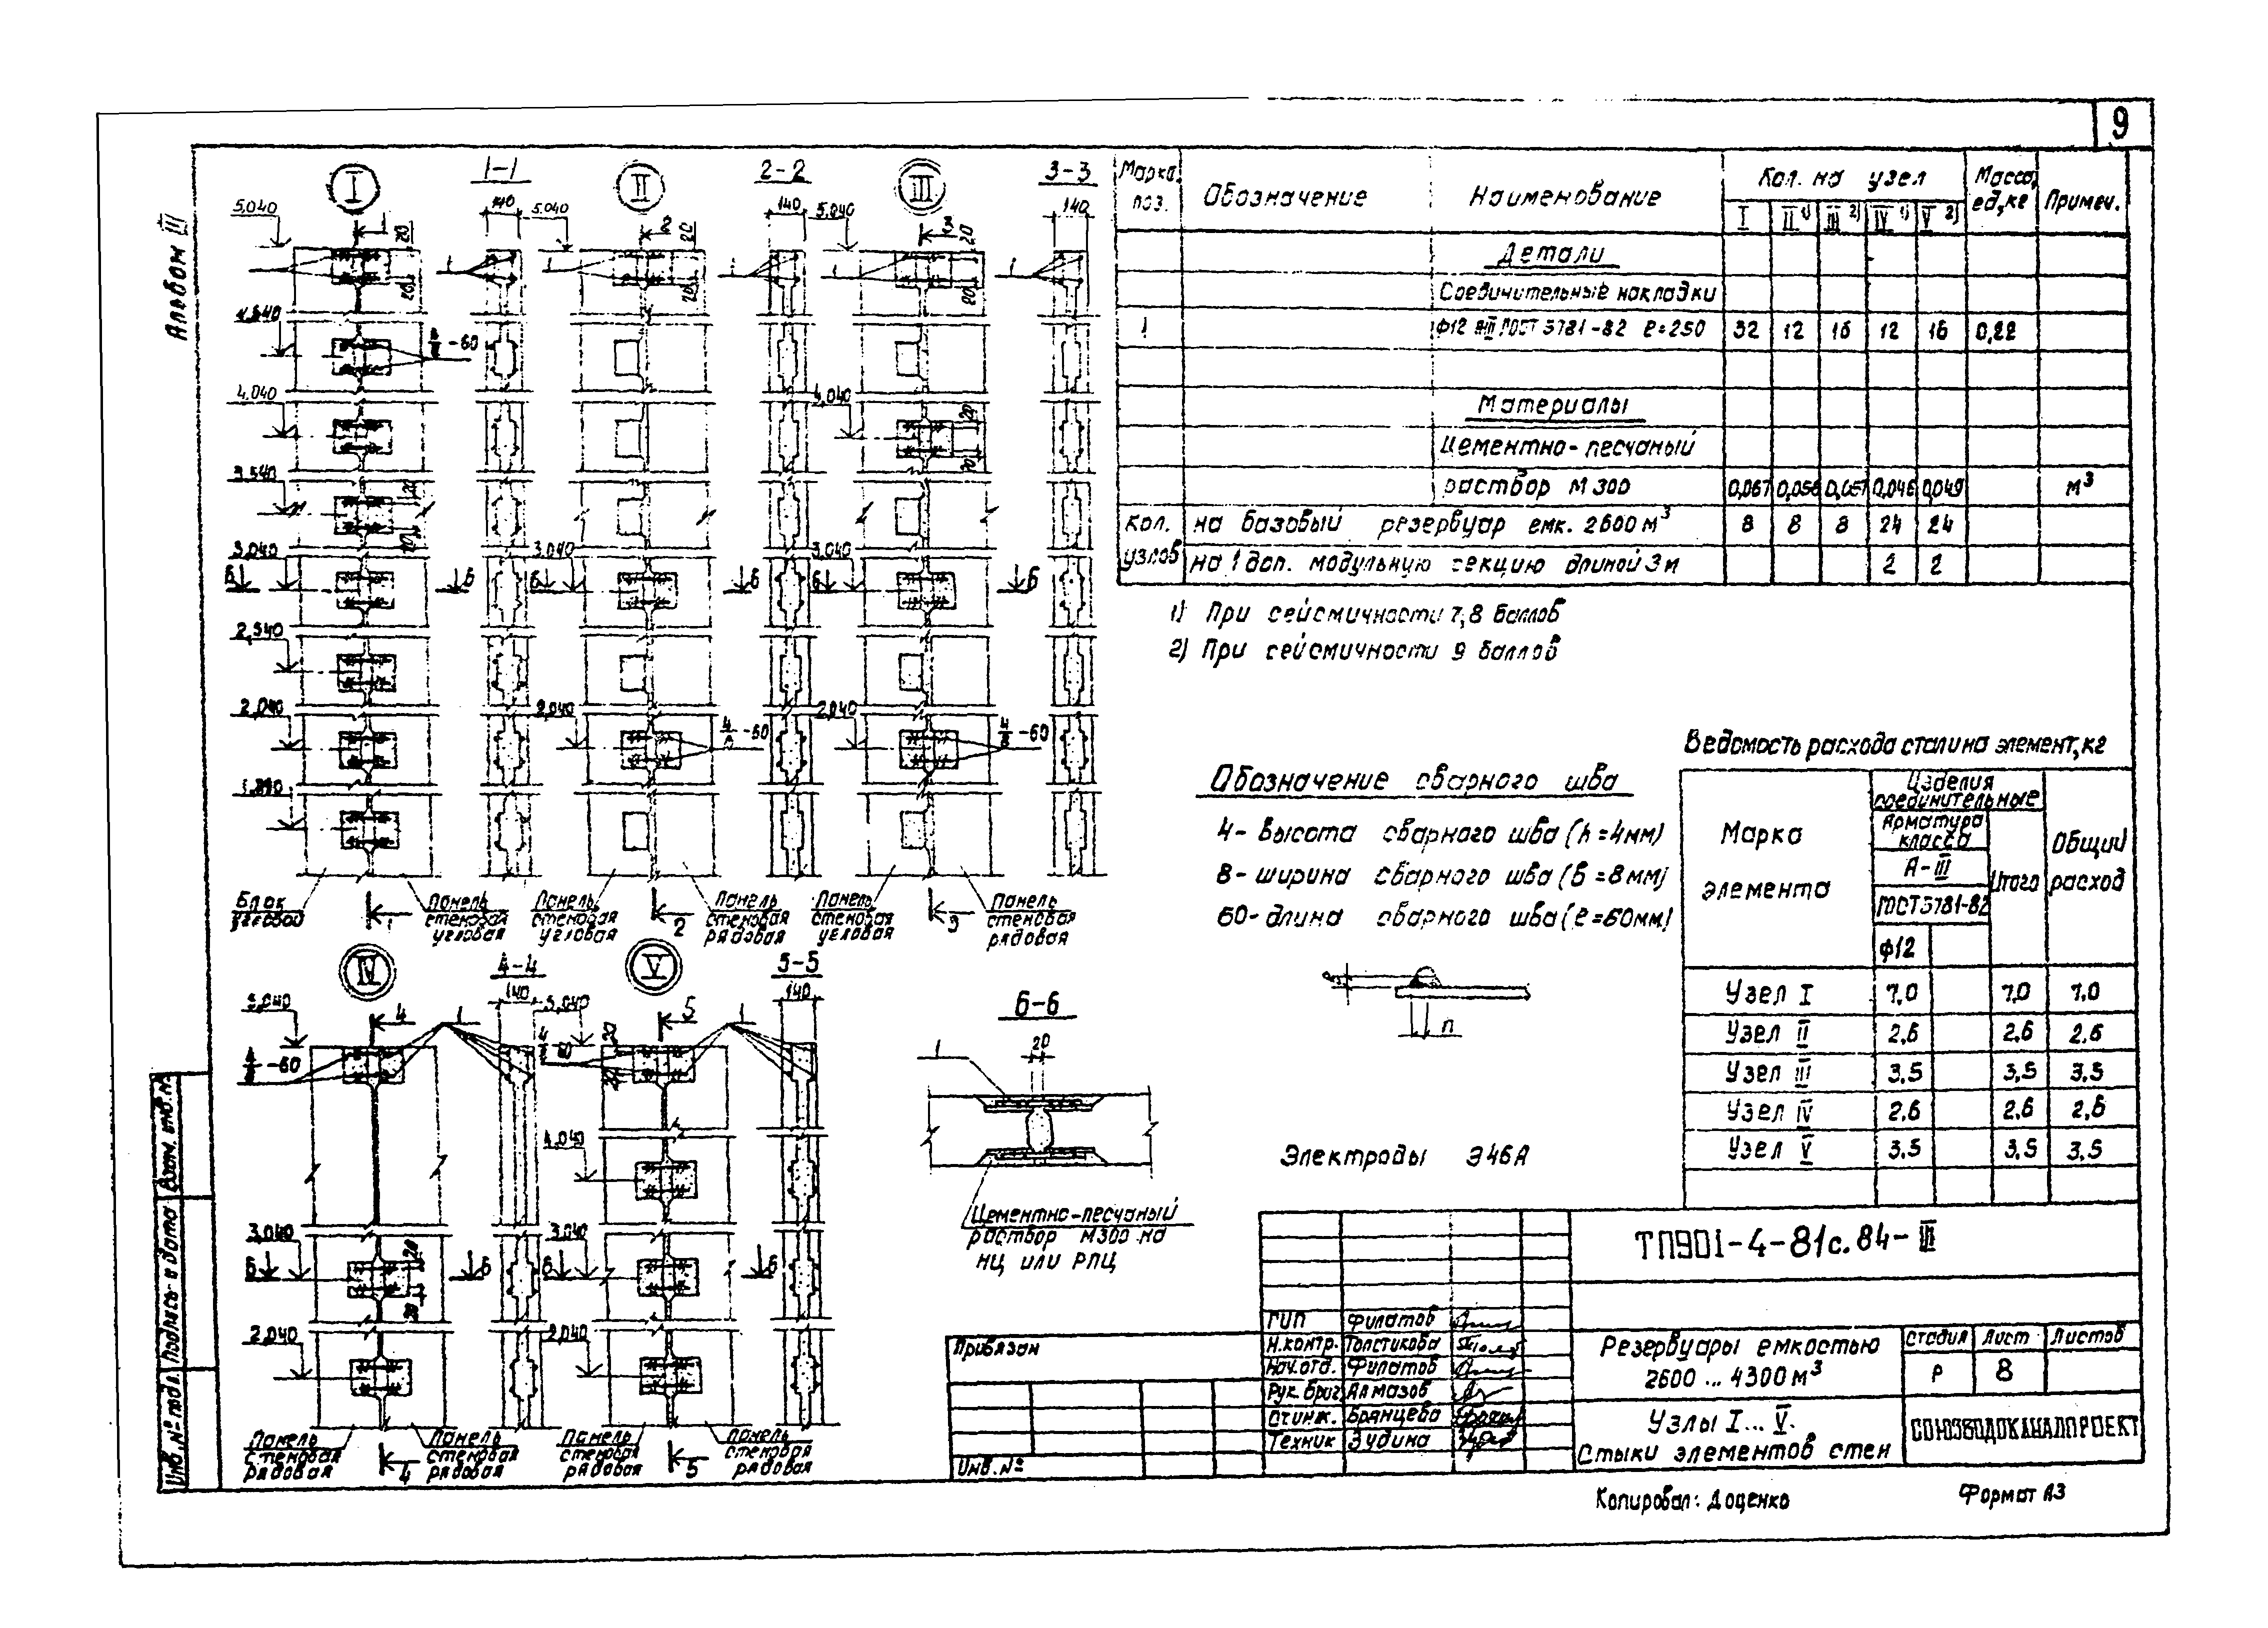 9
Альбом III
I
1-1
II
2-2
III
3-3
5.040
140
5.040
140
5.040
140
1
2
3
20
20
20
1
1
1
1
1
1
20
20
20
4.540
4/8-60
4.040
4.040
20
20
3.540
20
20
3.040
3.040
3.040
6
6
6
6
6
6
2.540
2.040
2.040
2.040
4/8-60
4/8-60
Блок угловой
Панель стеновая угловая
Панель стеновая угловая
Панель стеновая рядовая
Панель стеновая угловая
Панель стеновая рядовая
1
2
3
IV
4-4
V
5-5
5.040
4
1
140
5.040
5
1
140
4/8-60
4/8-60
20
20
4.040
3.040
3.040
6
6
6
6
20
20
2.040
2.040
Панель стеновая рядовая
Панель стеновая рядовая
Панель стеновая рядовая
Панель стеновая рядовая
4
5
6-6
20
1
Цементно-песчаный
раствор М300 на
НЦ или РПЦ
Марка, поз.
Обозначение
Наименование
Кол. на узел
Масса, ед, кг
Примеч.
I II 1) III 2) IV 1) V 2)
Детали
Соединительные накладки
1 Ф12 АIII ГОСТ 5781-82 ℓ=250 32 12 16 12 16 0,22
Материалы
Цементно-песчаный
раствор М 300 0,067 0,056 0,057 0,046 0,049 м³
Кол. на базовый резервуар емк. 2600 м³ 8 8 8 24 24
узлов на 1 доп. модульную секцию длиной 3м 2 2
1) При сейсмичности 7,8 баллов
2) При сейсмичности 9 баллов
Обозначение сварного шва
4- высота сварного шва (h=4мм)
8- ширина сварного шва (б=8мм)
60- длина сварного шва (ℓ=60мм)
п
Электроды Э46А
Ведомость расхода стали на элемент, кг
Марка элемента
Изделия соединительные
Арматура класса
А-III
ГОСТ 5781-82
Ф12
Итого
Общий расход
Узел I 7,0 7,0 7,0
Узел II 2,6 2,6 2,6
Узел III 3,5 3,5 3,5
Узел IV 2,6 2,6 2,6
Узел V 3,5 3,5 3,5
ТП901-4-81с.84-III
ГИП Филатов
Н.контр. Толстикова
Нач.отд. Филатов
Рук. бриг Алмазов
Ст.инж. Брянцева
Техник Зудина
Резервуары емкостью
2600 ... 4300 м³
Стадия Лист Листов
Р 8
Узлы I ... V.
Стыки элементов стен
СОЮЗВОДОКАНАЛПРОЕКТ
Привязан
Инв. №
Инв. № подл.
Подпись и дата
Взам. инв. №
Копировал: Доценко
Формат А3